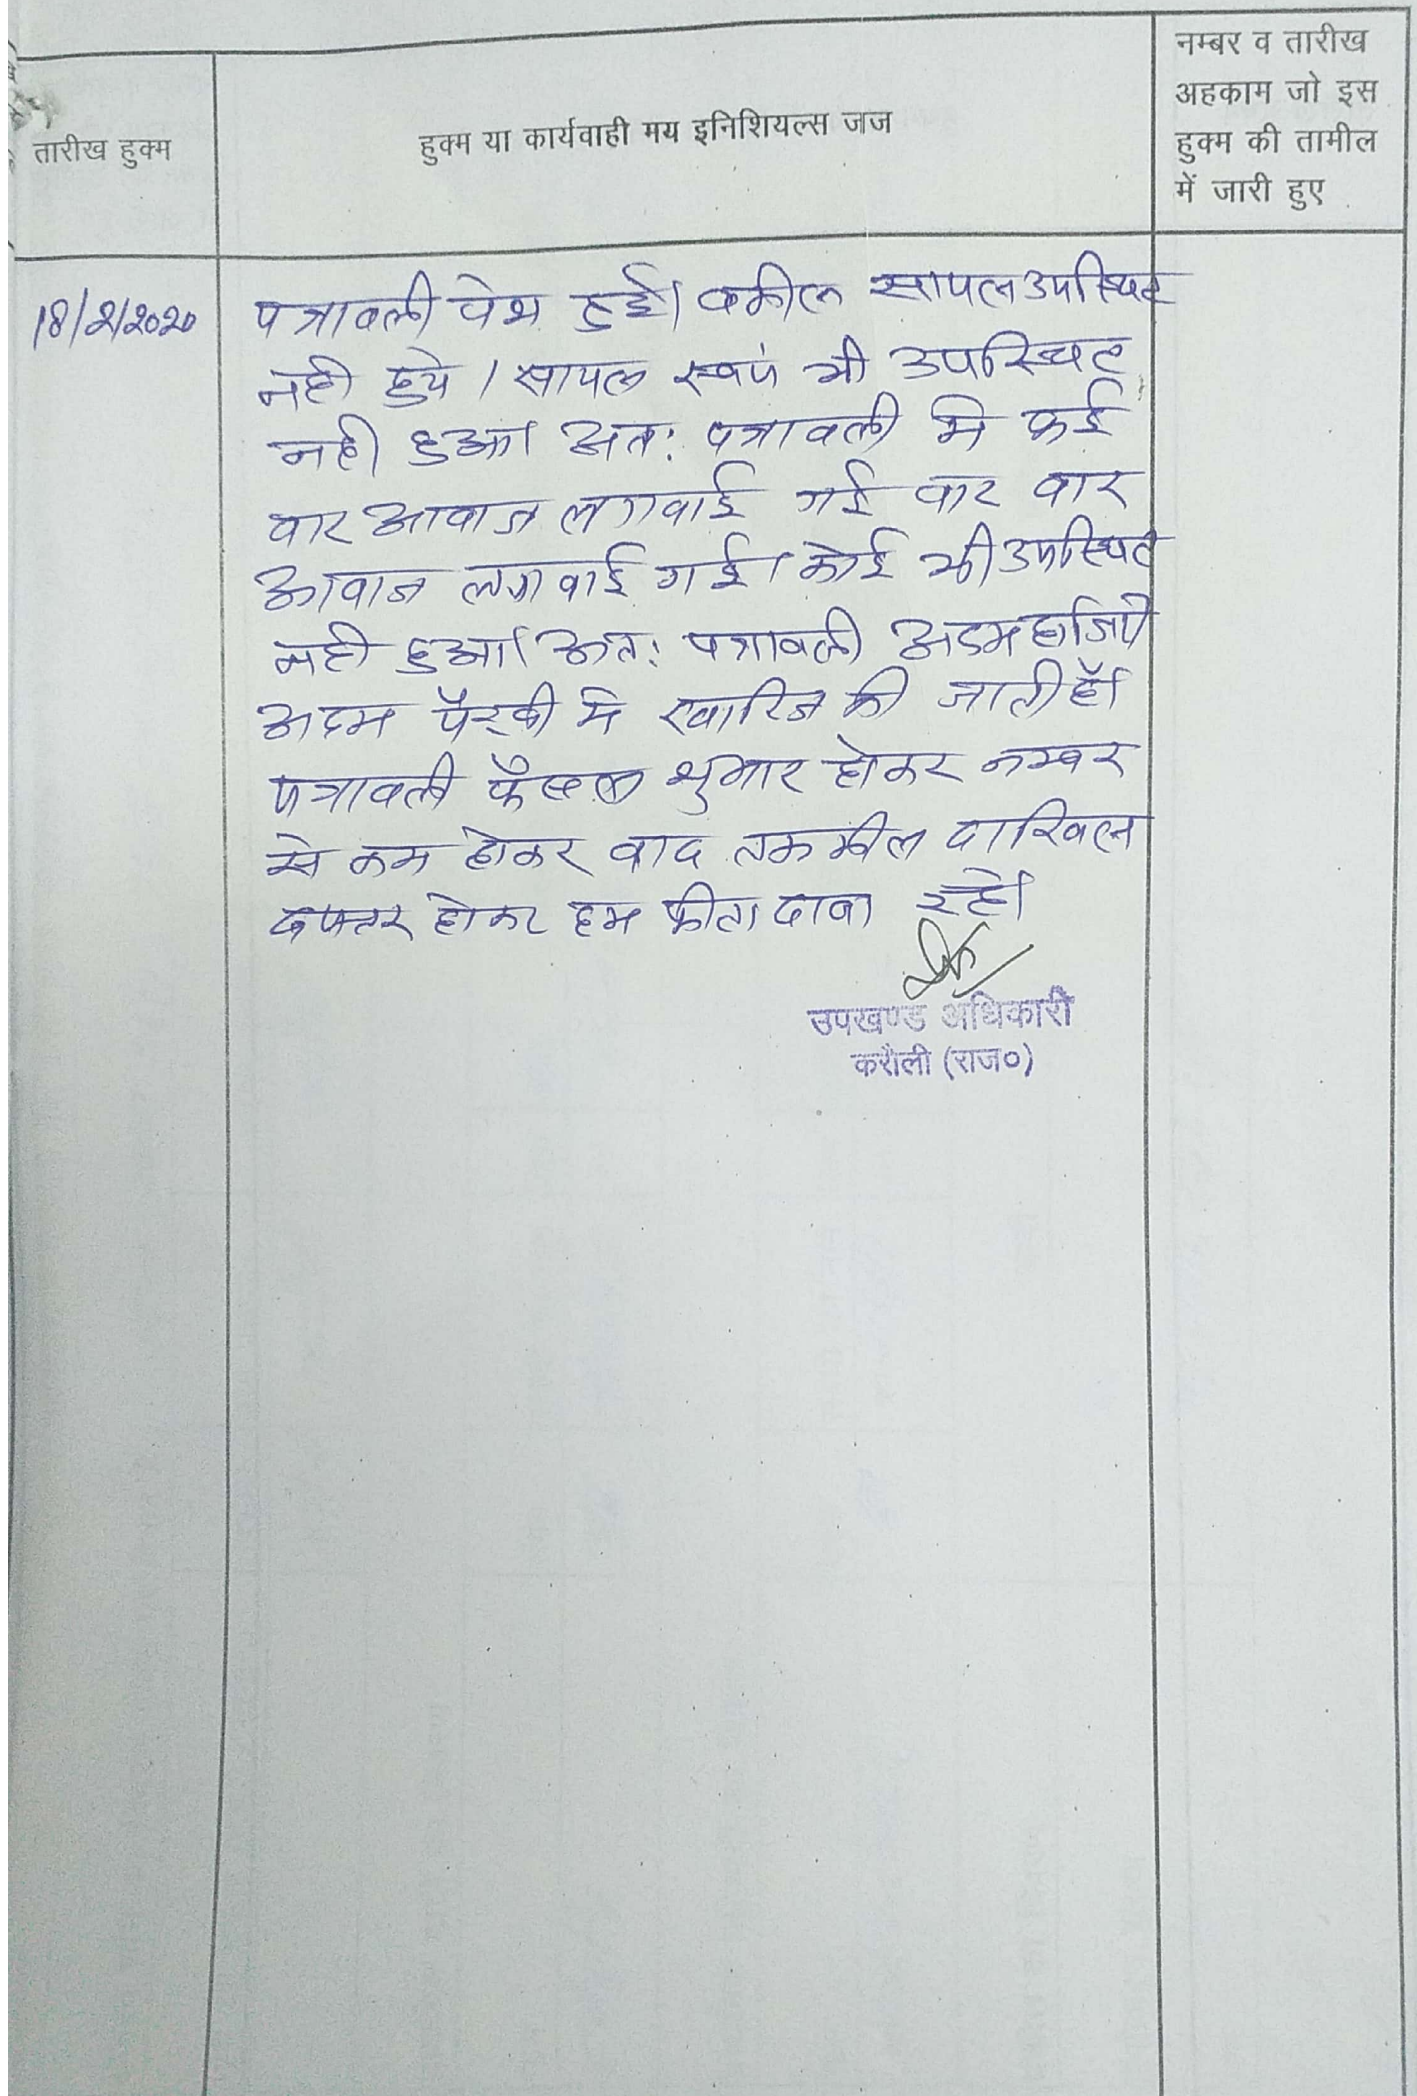 तारीख हुक्म
हुक्म या कार्यवाही मय इनिशियल्स जज
नम्बर व तारीख
अहकाम जो इस
हुक्म की तामील
में जारी हुए
18/2/2020
पत्रावली पेश हुई। वकील सायल उपस्थित
नही हुये। सायल स्वयं भी उपस्थित
नही हुआ। अतः पत्रावली मे कई
वार आवाज लगवाई गई वार वार
आवाज लगवाई गई। कोई भी उपस्थित
नही हुआ। अतः पत्रावली अदम हाजिरी
अदम पैरवी मे खारिज की जाती है।
पत्रावली फैसल शुमार होकर नम्वर
से कम होकर वाद तकमील दाखिल
दफ्तर होकर हम दावा रहे।
उपखण्ड अधिकारी
करौली (राज०)